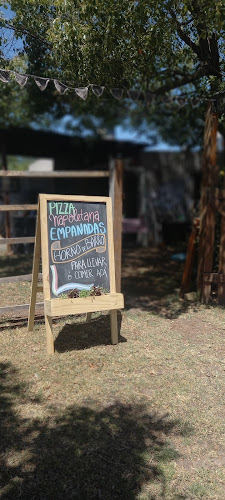 PIZZA
napoletana
EMPANADAS
HORNO DE BARRO
PARA LLEVAR
O COMER ACÁ